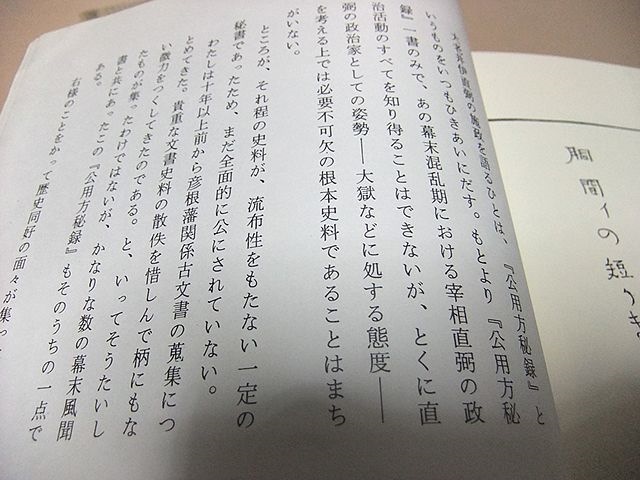 大老井伊直弼の施政を語るひとは、『公用方秘録』と
いうものをいつもひきあいにだす。もとより『公用方秘
録』一書のみで、あの幕末混乱期における宰相直弼の政
治活動のすべてを知り得ることはできないが、とくに直
弼の政治家としての姿勢――大獄などに処する態度――
を考える上では必要不可欠の根本史料であることはまち
がいない。
ところが、それ程の史料が、流布性をもたない一定の
秘書であったため、まだ全面的に公にされていない。
わたしは十年以上前から彦根藩関係古文書の蒐集につ
とめてきた。貴重な文書史料の散佚を惜しんで柄にもな
い微力をつくしてきたのである。と、いってそうたいし
たものが集ったわけではないが、かなりな数の幕末風聞
書と共にあったこの『公用方秘録』もそのうちの一点で
ある。
右様のことをかって歴史同好の面々が集っ
間
の短